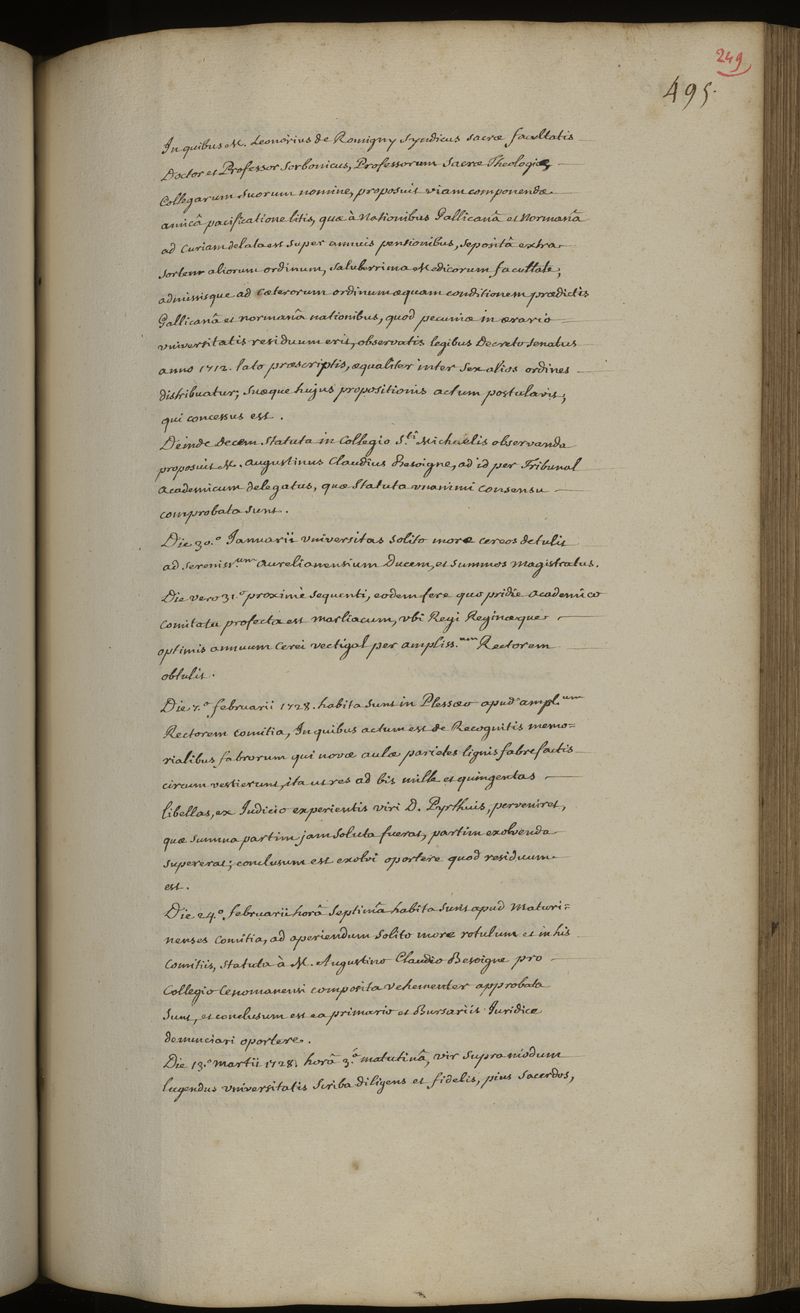 249
495.
In quibus M. Leonorius de Romigny Syndicus sacræ facultatis
Doctor et Professor Sorbonicus, Professorum Sacræ Theologiæ,
Collegarum suorum nomine, proposuit viam componendæ
amicâ pacificatione litis, quæ à Nationibus Gallicanâ et Normanâ
ad Curiam delata est super annuis pensionibus, sepositâ extra
sortem aliorum ordinum, saluberrima Medicorum facultate,
admissisque ad cæterorum ordinum æquam conditionem prædictis
Gallicanâ et normanâ nationibus, quod pecuniæ in ærario
universitatis residuum erit, observatis legibus Decreto Senatus
anno 1712. lato præscriptis, æqualiter inter sex alios ordines
distribuatur; suæque hujus propositionis actum postulavit,
qui concessus est.
Deinde Decem Statuta in Collegio S.ti Michaelis observanda
proposuit M. Augustinus Claudius Besoigne, ad id per Tribunal
Academicum delegatus, quæ Statuta unanimi consensu
comprobata sunt.
Die 30.º Januarii universitas solito more cereos detulit
ad Sereniss.um Aurelianensium Ducem, et summos magistratus.
Die vero 31.º proximè sequenti, eodem fere quo pridie academico
Comitatu profecta est marliacum, ubi Regi Reginæque
optimis annuum Cerei vectigal per ampliss.mum Rectorem
obtulit.
Die 7.º februarii 1728. habita sunt in Plessæo apud ampl.um
Rectorem comitia, In quibus actum est de Recognitis memo=
rialibus fabrorum qui novæ aulæ parietes lignis fabrefactis
circum vestierunt, ita ut res ad bis mille et quingentas
libellas, ex Judicio experientis viri D. Pyrthuis, perveniret,
quæ summa partim jam soluta fuerat, partim exolvenda
supererat; conclusum est exolvi oportere quod residuum
est.
Die 24.º februarii horâ septimâ habita sunt apud Maturi=
nenses Comitia, ad aperiendum solito more rotulum et in his
Comitiis, statuta à M. Augustino Claudio Besoigne pro
Collegio Cenomanensi composita vehementer approbata
sunt, et conclusum est ea primario et Bursariis Juridicè
denunciari oportere.
Die 13.º Martii 1728. horâ 3.â matutinâ, vir supra modum
lugendus universitatis Scriba diligens et fidelis, pius Sacerdos,